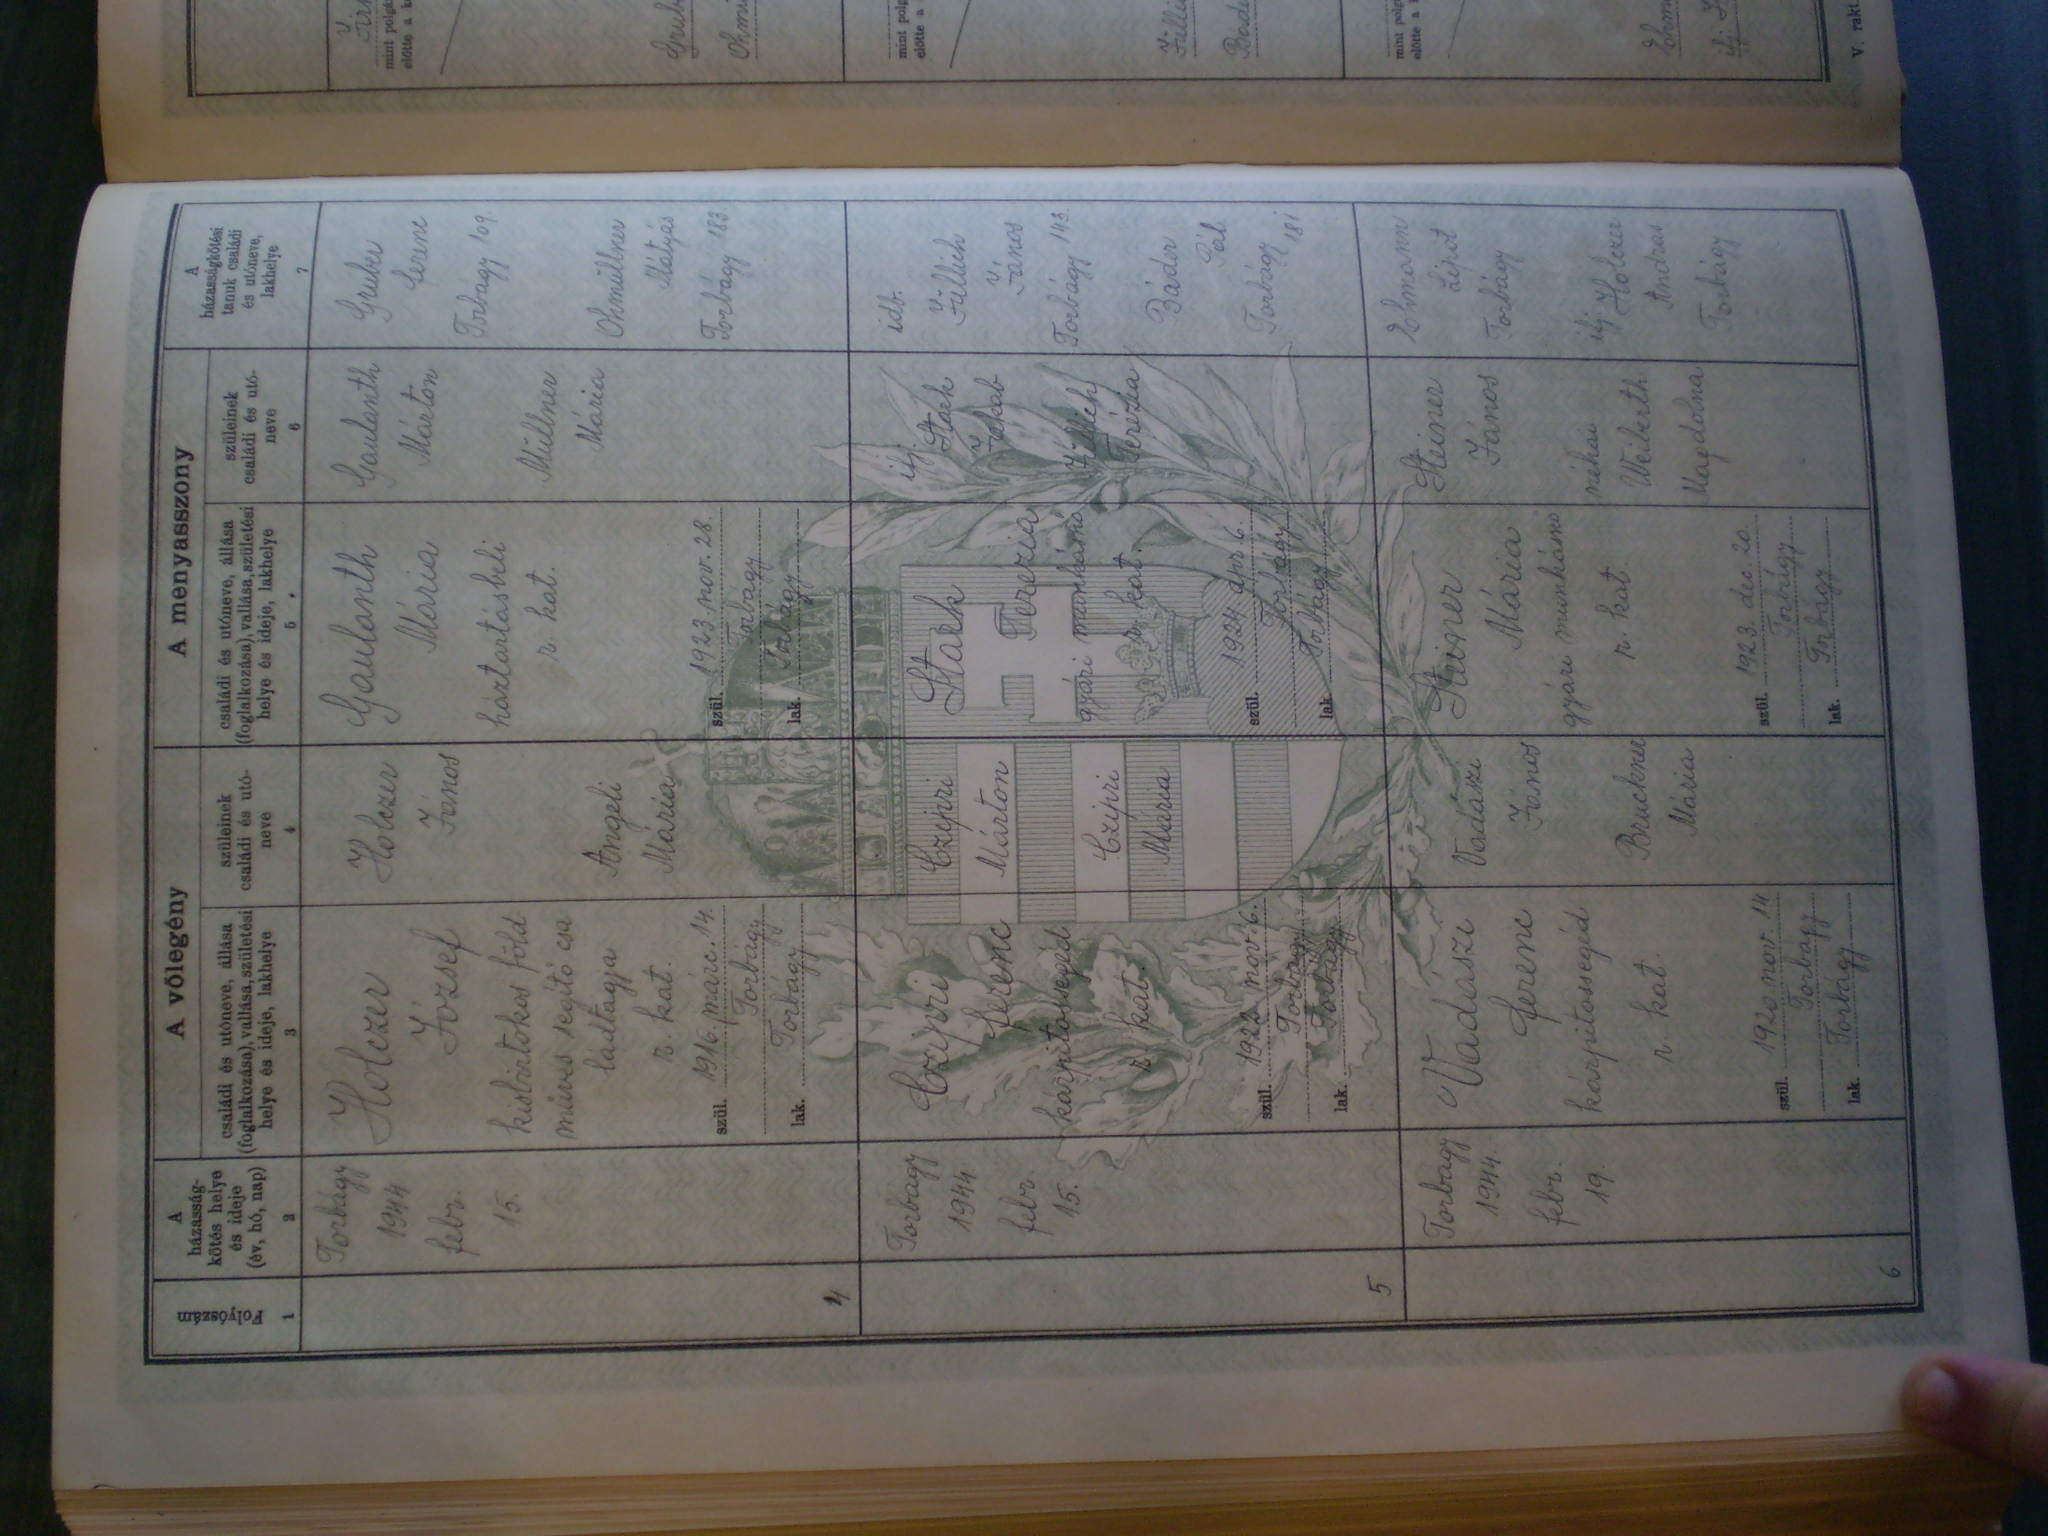 Folyószám
1
A
házasság-
kötés helye
és ideje
(év, hó, nap)
2
A vőlegény
családi és utóneve, állása
(foglalkozása), vallása, születési
helye és ideje, lakhelye
3
szüleinek
családi és utó-
neve
4
A menyasszony
családi és utóneve, állása
(foglalkozása), vallása, születési
helye és ideje, lakhelye
5
szüleinek
családi és utó-
neve
6
A
házasságkötési
tanuk családi
és utóneve,
lakhelye
7
4
Torbágy
1944
febr.
15.
Holczer
József
kisbirtokos föld
műves segítő csa
ládtagja
r. kat.
szül. 1916. márc. 14.
Torbágy
lak. Torbágy
Holczer
János
Angeli
Mária
Gaulanth
Mária
háztartásbeli
r. kat.
szül. 1923. nov. 28.
Torbágy
lak. Torbágy
Gaulanth
Márton
Müllner
Mária
Gruber
Ferenc
Torbágy 109.
Ohmüllner
Mátyás
Torbágy 183.
5
Torbágy
1944
febr.
15.
Czipri
Ferenc
kárpitossegéd
r. kat.
szül. 1922 nov. 6.
Torbágy
lak. Torbágy
Czipri
Márton
Czipri
Mária
Stark
Terezia
gyári munkásnő
r. kat.
szül. 1924 ápr 6.
Torbágy
lak Torbágy
ifj. Stark
Jakab
Jillich
Terézia
idb.
Jillich
János
Torbágy 143.
Báder
Pál
Torbágy 181
6
Torbágy
1944.
febr.
19.
Vadászi
Ferenc
kárpitossegéd
r. kat.
szül. 1920 nov. 14
Torbágy
lak. Torbágy
Vadászi
János
Bruckner
Mária
Steiner
Mária
gyári munkásnő
r. kat.
szül. 1923. dec. 20.
Torbágy
lak. Torbágy
Steiner
János
néhai
Weiberth
Magdolna
Ehmann
Lipót
Torbágy
ifj Holczer
András
Torbágy
mint polgá
előtte a k
Ohmü
mint polg
előtte a
Jilli
Báde
mint polg
előtte a
Ehm
ifj
V. rakt.